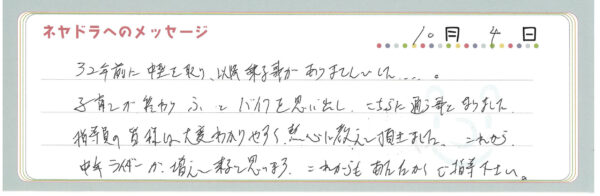 ネヤドラへのメッセージ
10月 4日
32年前に中型を取り、以降乗る事がありませんでした....。
子育てが終わり ふっとバイクを思い出し、こちらに通う事となりました。
指導員の皆様は大変わかりやすく、熱心に教えて頂きました。これから
中年ライダーが、増えて来ると思いますが、これからもあたたかくご指導下さい。